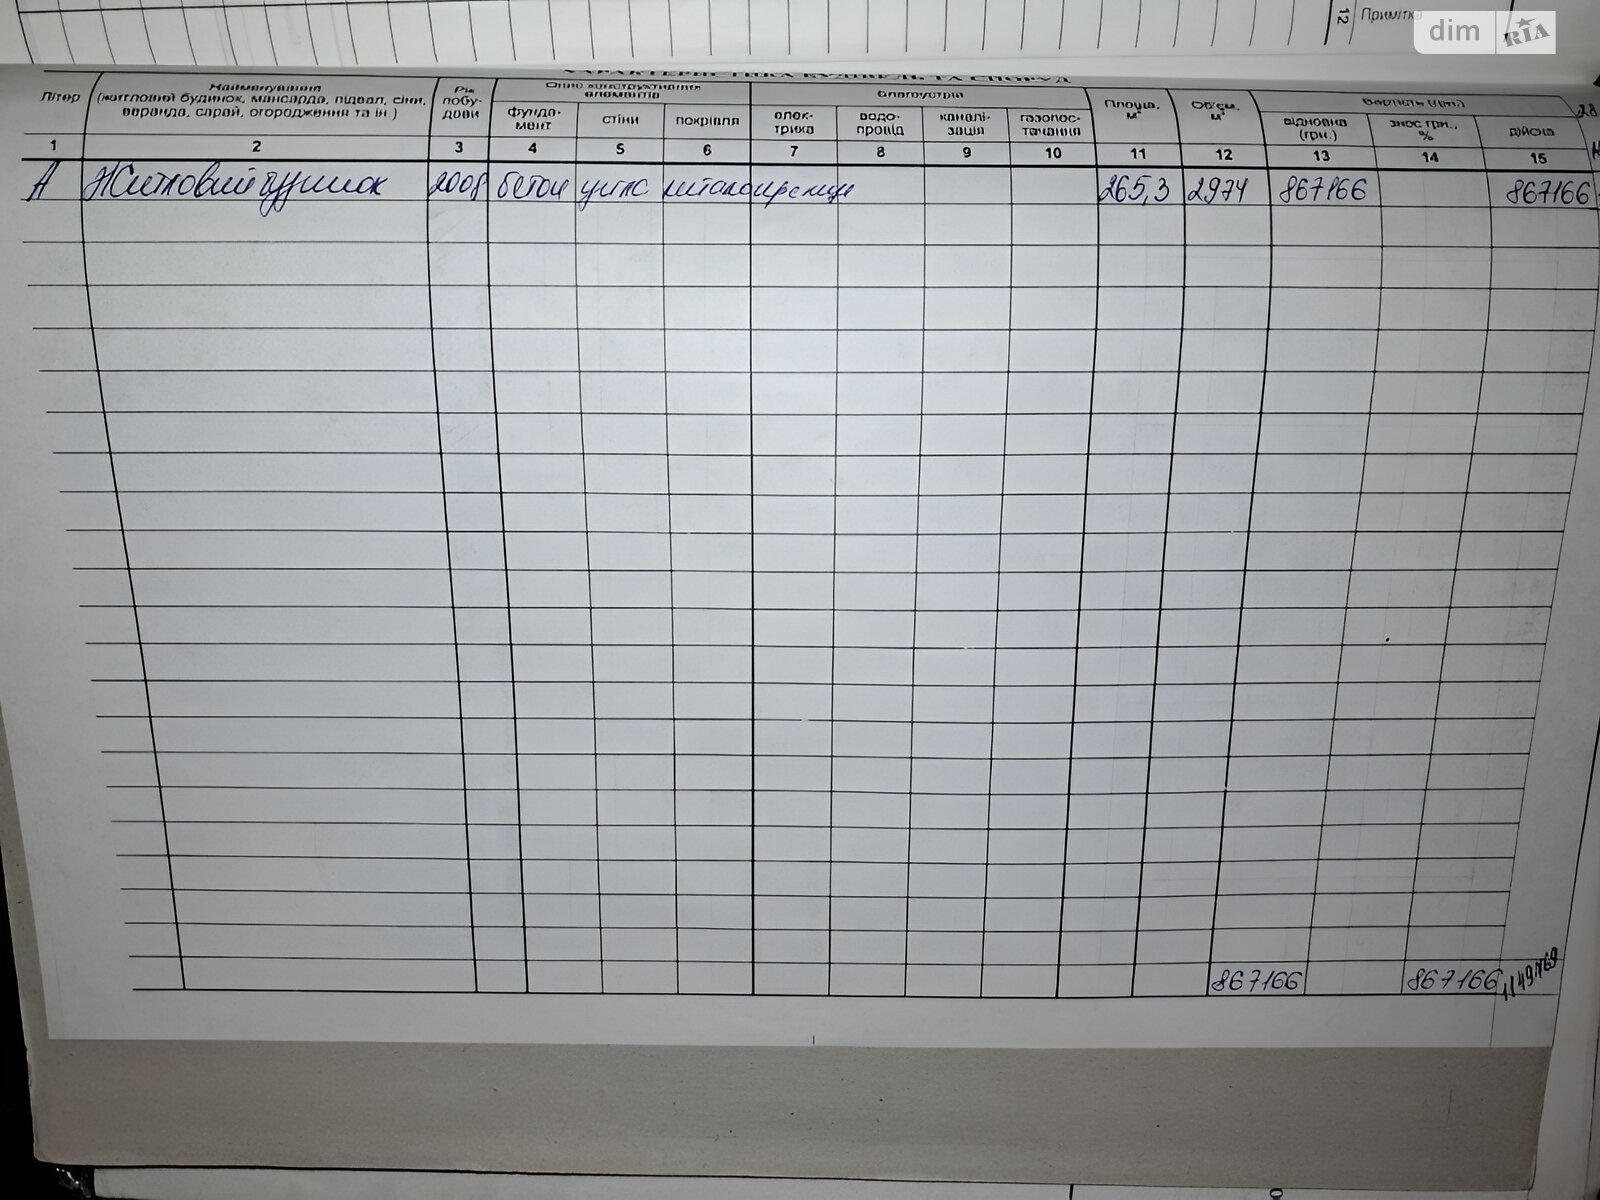 12 Примітка
dim RIA
ХАРАКТЕРИСТИКА БУДІВЕЛЬ ТА СПОРУД
Літер
Найменування
(житловий будинок, мансарда, підвал, сіни,
веранда, сарай, огородження та ін.)
Рік
побу-
дови
Опис конструктивних
елементів
Благоустрій
Площа,
м²
Об'єм,
м³
Вартість (грн.)
фунда-
мент
стіни
покрівля
елек-
трика
водо-
провід
каналі-
зація
газопос-
тачання
відновна
(грн.)
знос грн.,
%
дійсна
1 2 3 4 5 6 7 8 9 10 11 12 13 14 15
А Житловий будинок 2008 бетон цегла металочерепиця 265,3 2974 867166 867166
867166 867166